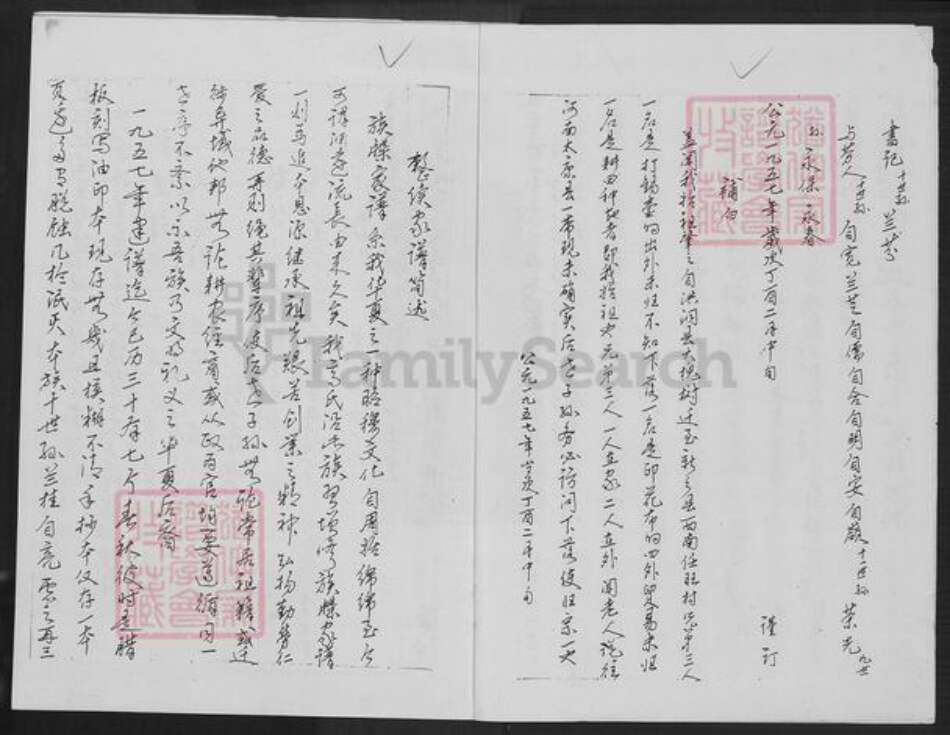 書记 十世孙 兰芬
与芳人 十世孙 自克 兰芝 自儒 自含 自明 自安 自敬 十一世孙 荣光 九世
孙 永保 永春
公元一九五七年歲次丁酉二月中旬 谨订
補白
盖闻我始祖肇之自洪洞县大槐树迁至新立县西南任旺村兄弟三人
一名是打锡壶的出外未归不知下落一名是印花布的四外贸易未归
一名是耕田种地者即我始祖也兄弟三人一人在家二人在外闻老人说往
河南太康县一带现未确实后世子孙务必访问下落使归宗一处
公元一九五七年歲次丁酉二月中旬
整续家谱简述
族牒家谱系我华夏之一种昭穆文化自周始绵绵至今
可谓源远流长由来久矣我高氏沿此族習填修族牒家谱
一则为追本思源继承祖先艰苦创業之精神弘扬勤劳仁
爱之品德再则绳其輩序使后世子孙無論常居祖籍或迁
徙异域他邦無论耕农经商或从政为官均要遵循同一
世序不紊以示吾族乃文明礼义之华夏后裔
一九五七年建谱迄今已历三十有七个春秋彼时是腊
板刻写油印本现存無幾且模糊不清手抄本仅存一本
页边多有脱蚀几于泯灭本族十世孙兰桂自亮虑之再三
FamilySearch